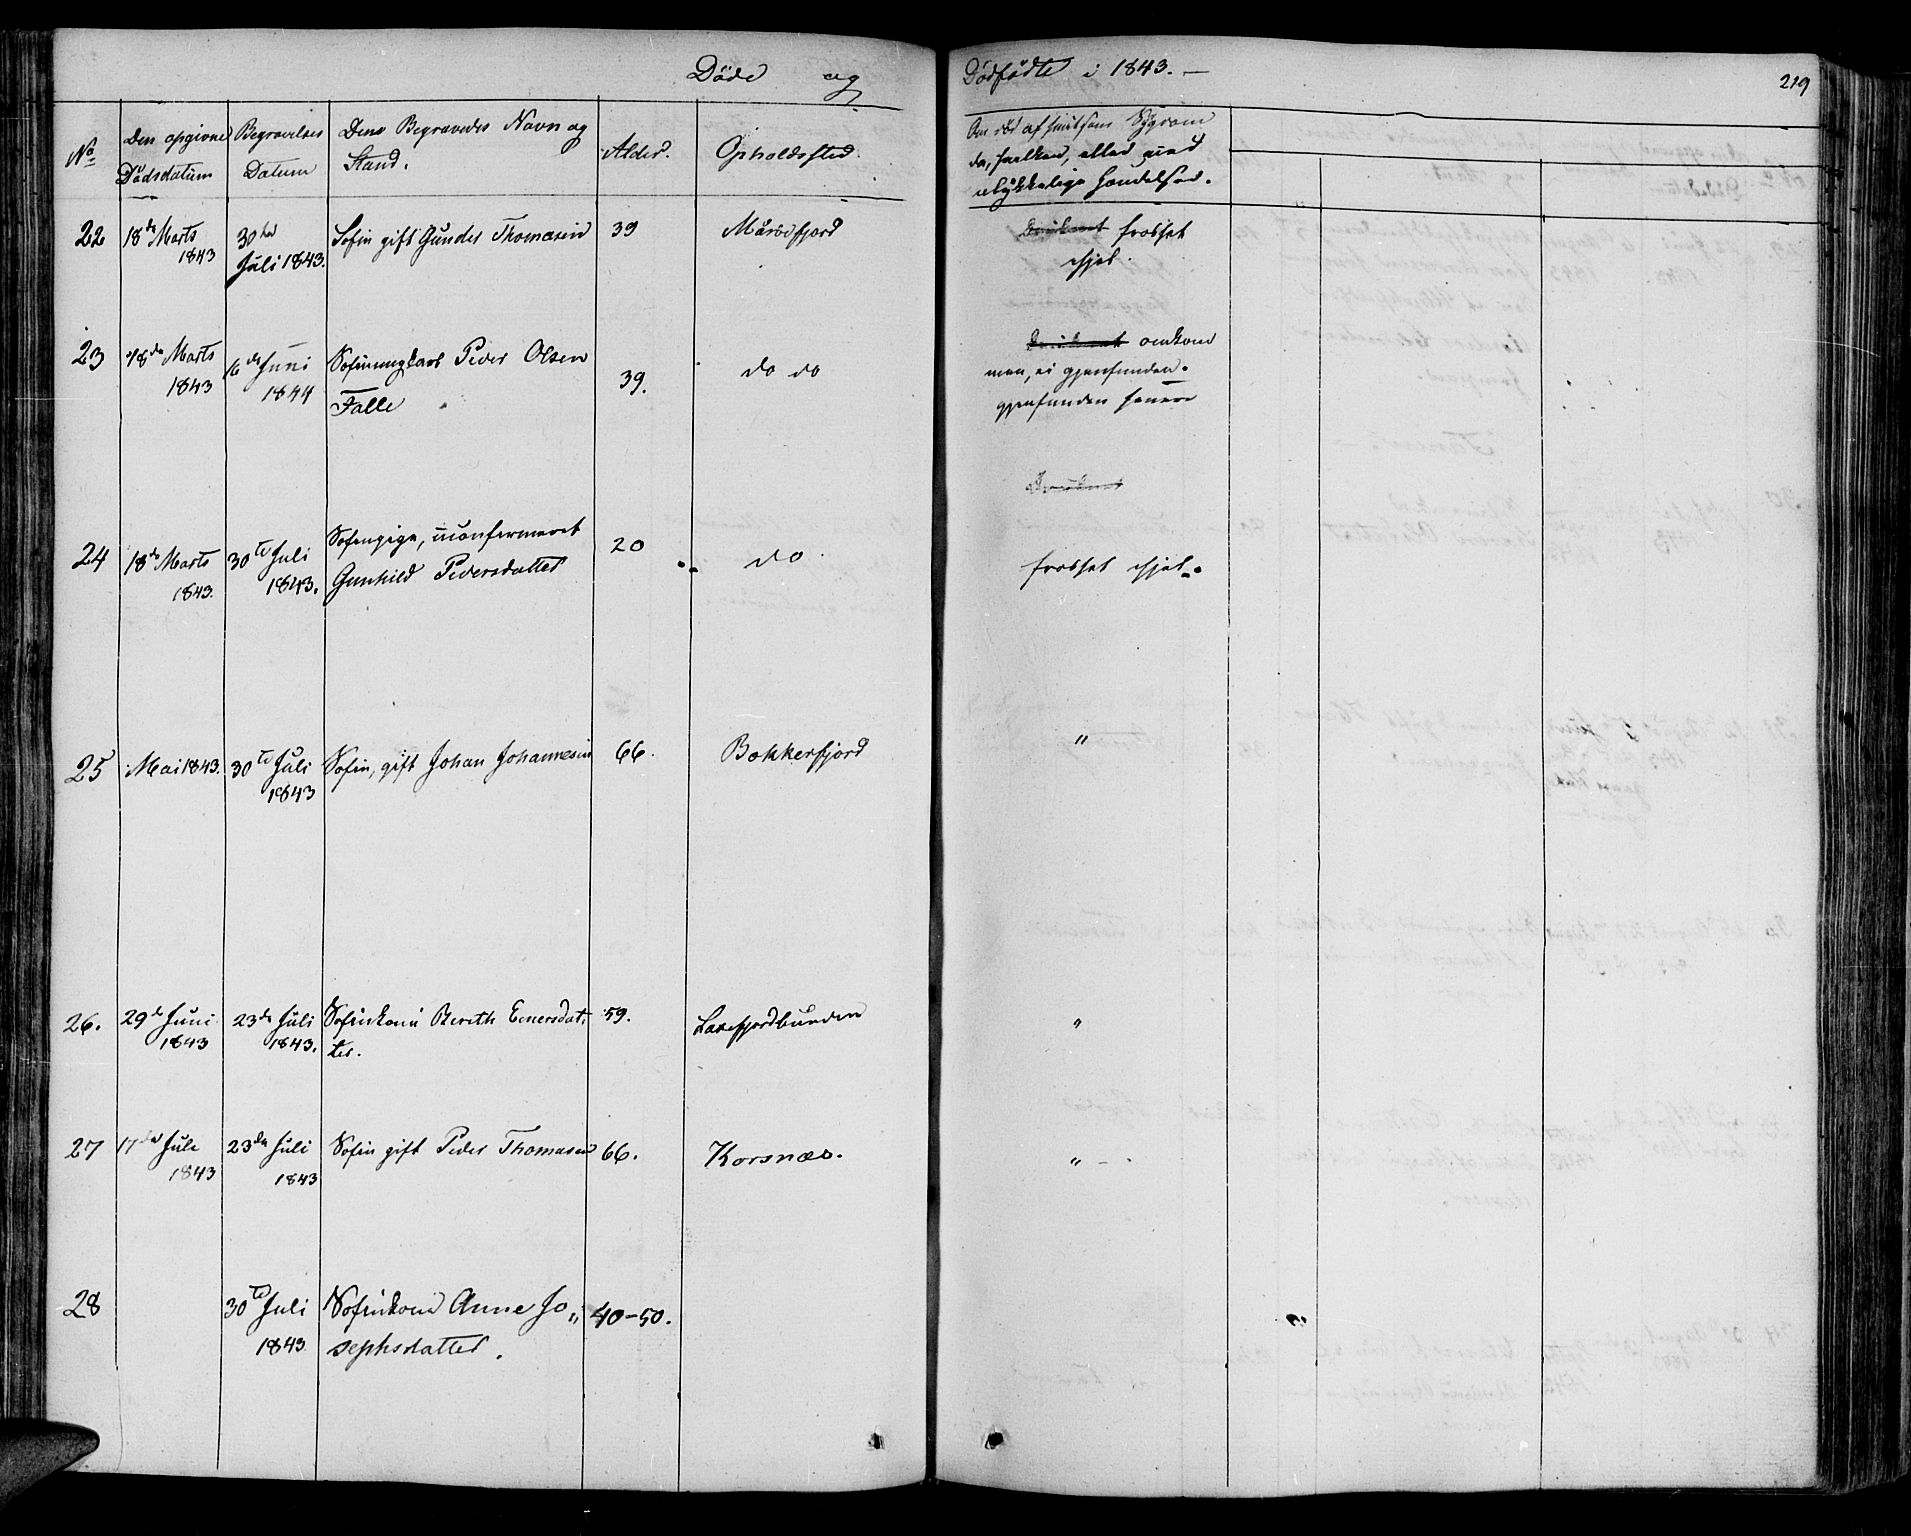 Döde og Dödfödte i 1843. —
219
No
Den opgivne
Dödsdatum
Begravelses
Datum
Dens Begravedes Navn og
Stand.
Alder.
Opholdssted.
Om död af smitsom Sygdom
da, hvilken, eller ved
ulykkelige Hændelser.
22
18de Marts
1843
30te
Juli 1843.
Søfin gift Gunder Thomasen
39
frosset
ihjel.
23
18de Marts
1843
6te Juni
1844
Peder Olsen
Falle
39.
do do
omkom
men, ei gjenfunden.
gjenfunden senere
24
18de Marts
1843.
30te Juli
1843.
Søfinpige, uconfirmeret
Gunhild Pedersdatter
20
do
frosset ihjel.
25
Mai 1843.
30te Juli
1843
Søfin, gift Johan Johannesen
66.
Bokkerfjord
"
26.
29de Juni
1843
23de Juli
1843.
Søfinkone Bereth Enersdat,
ter.
59.
Laxefjordbunden
"
27
17de Juli
1843
23de Juli
1843
Søfin gift Peder Thomasen
66.
Korsnæs.
" – .
28
30te Juli
1843
Søfinkone Anne Jo"
sephsdatter.
40-50.